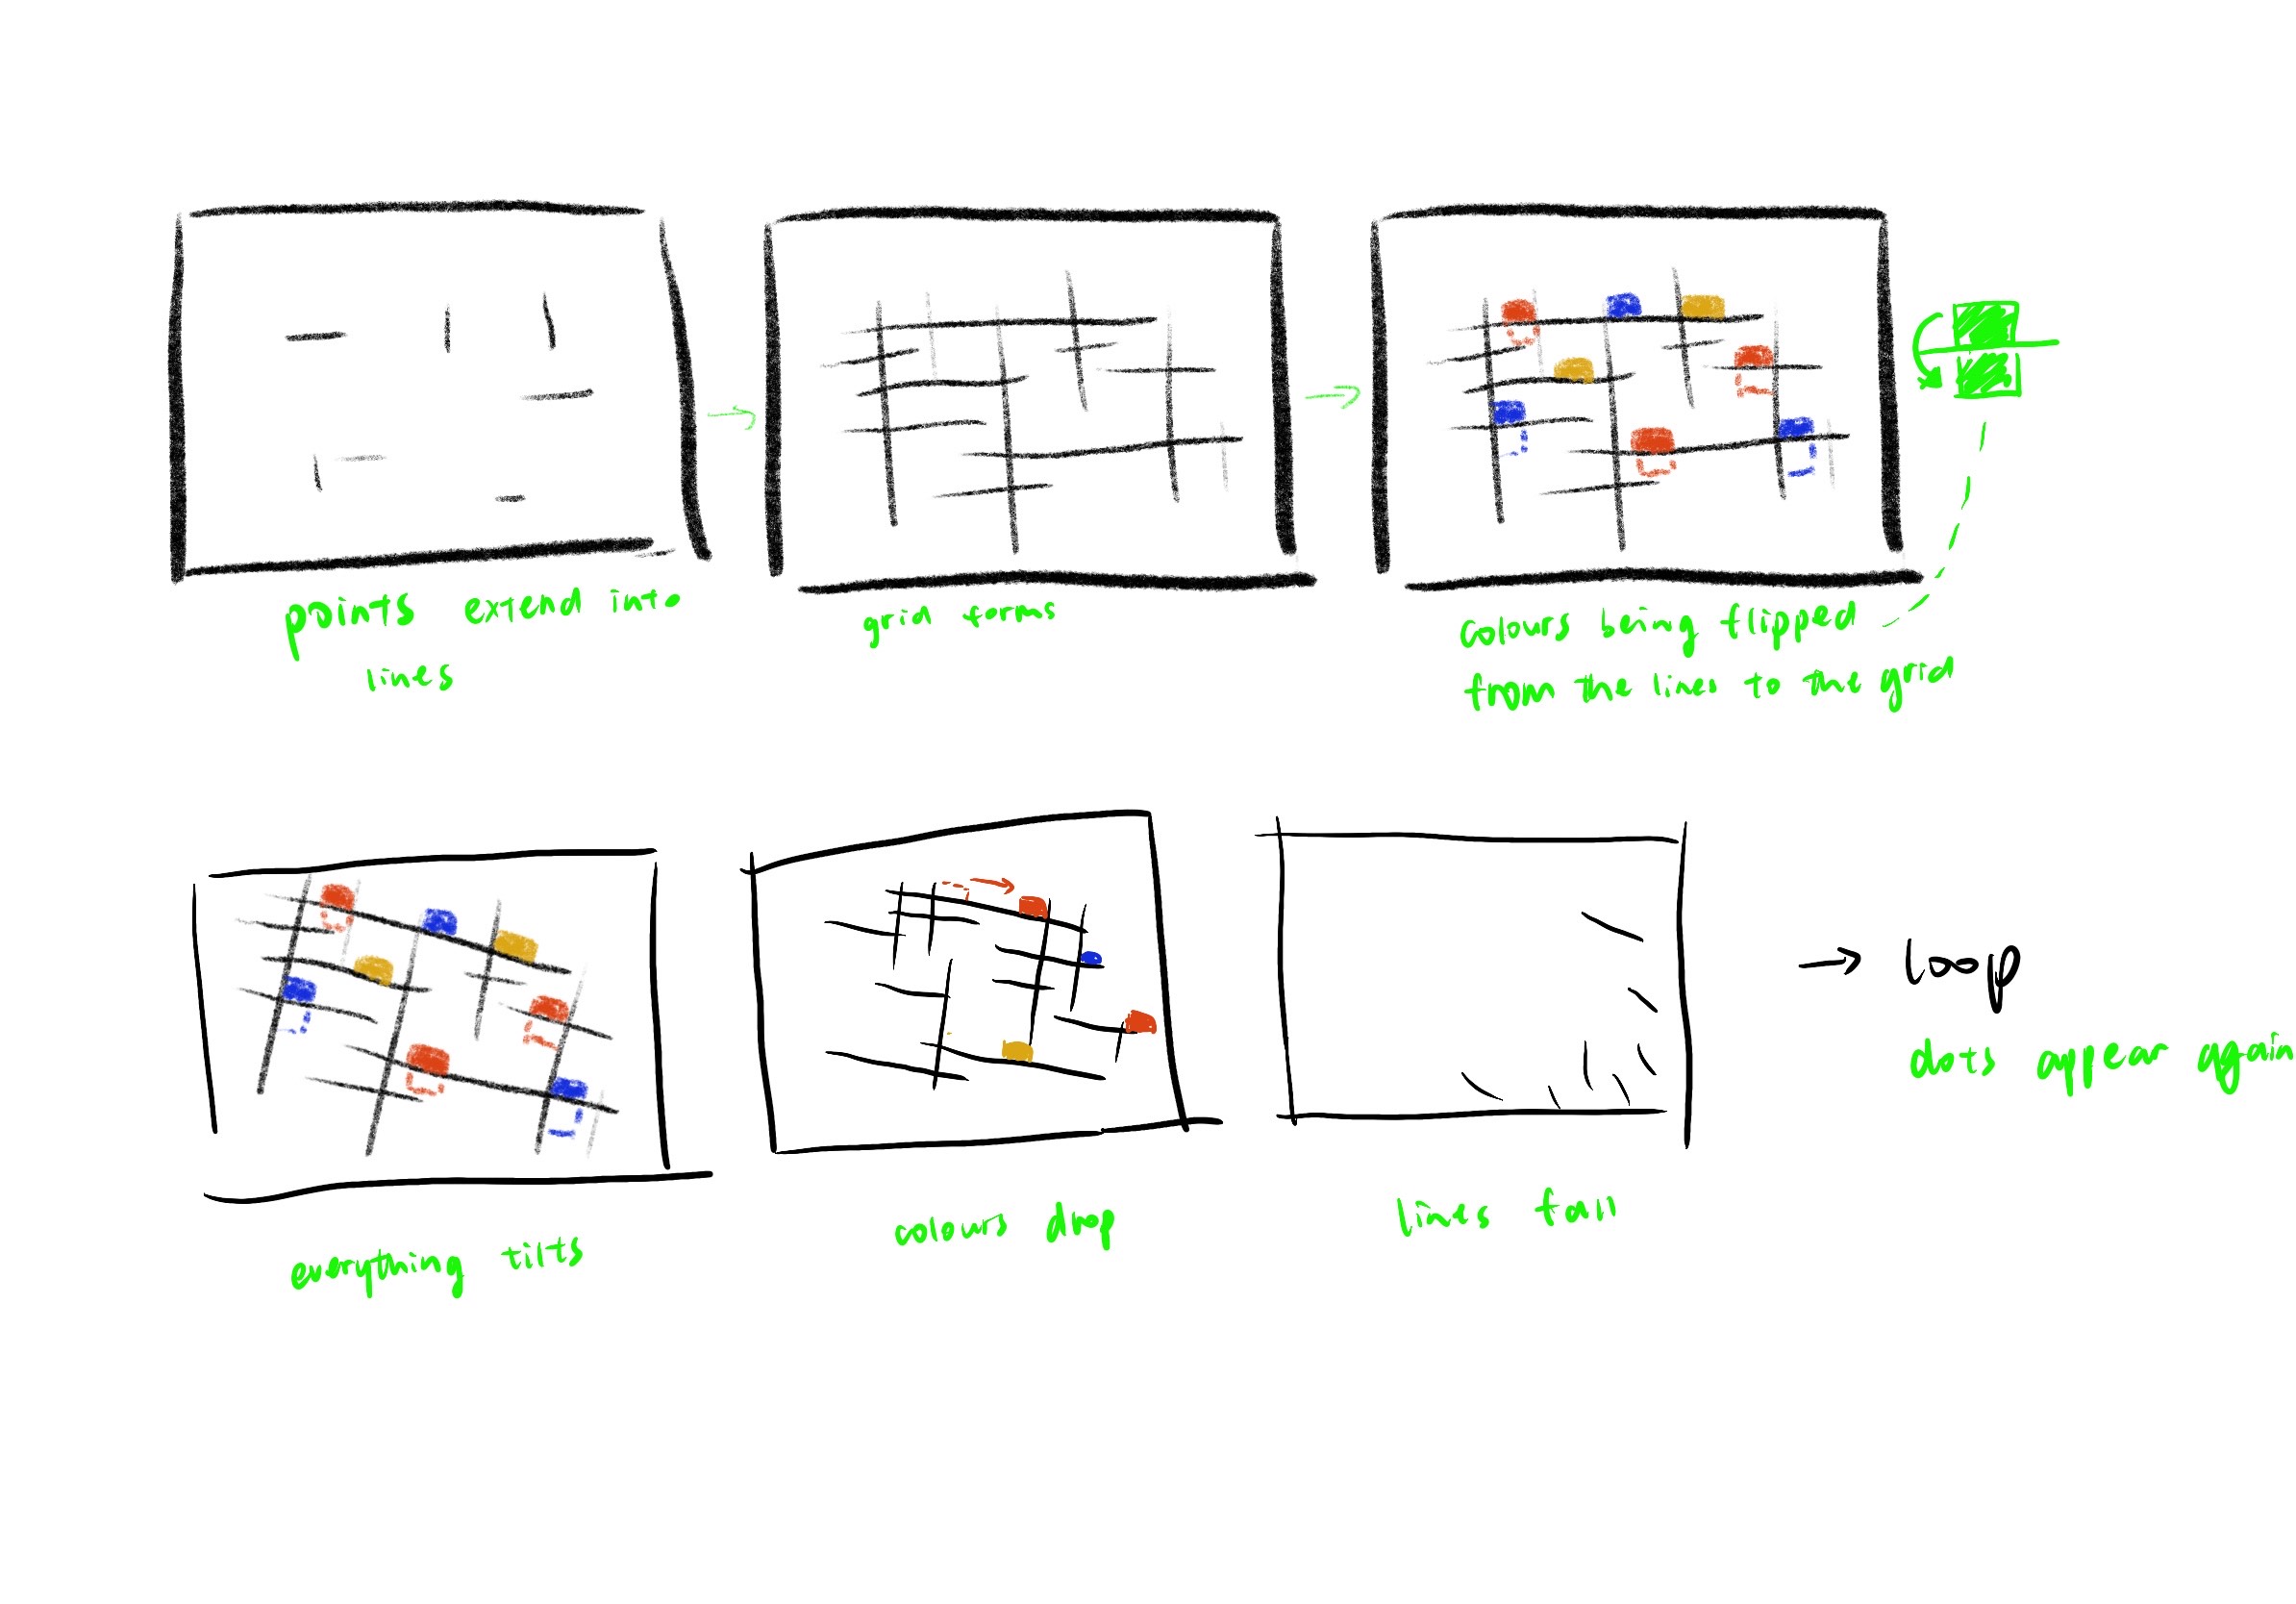 points extend into
lines
grid forms
colours being flipped
from the lines to the grid
everything tilts
colours drop
lines fall
→ loop
dots appear again